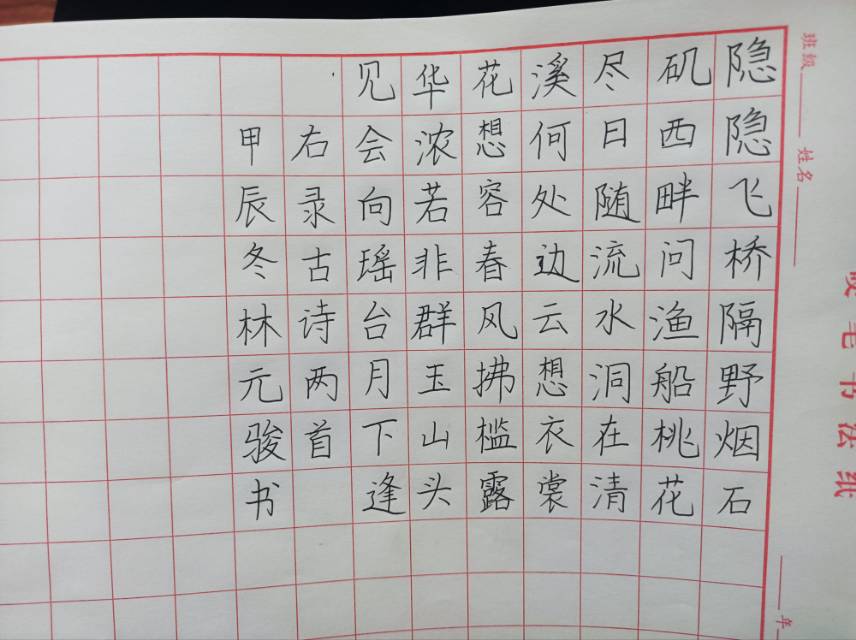 班级 姓名 年
硬笔书法纸
隐隐飞桥隔野烟石
矶西畔问渔船桃花
尽日随流水洞在清
溪何处边云想衣裳
花想容春风拂槛露
华浓若非群玉山头
见会向瑶台月下逢
右录古诗两首
甲辰冬林元骏书